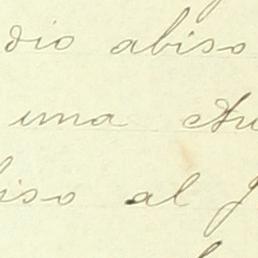 dio abiso
una
iso al